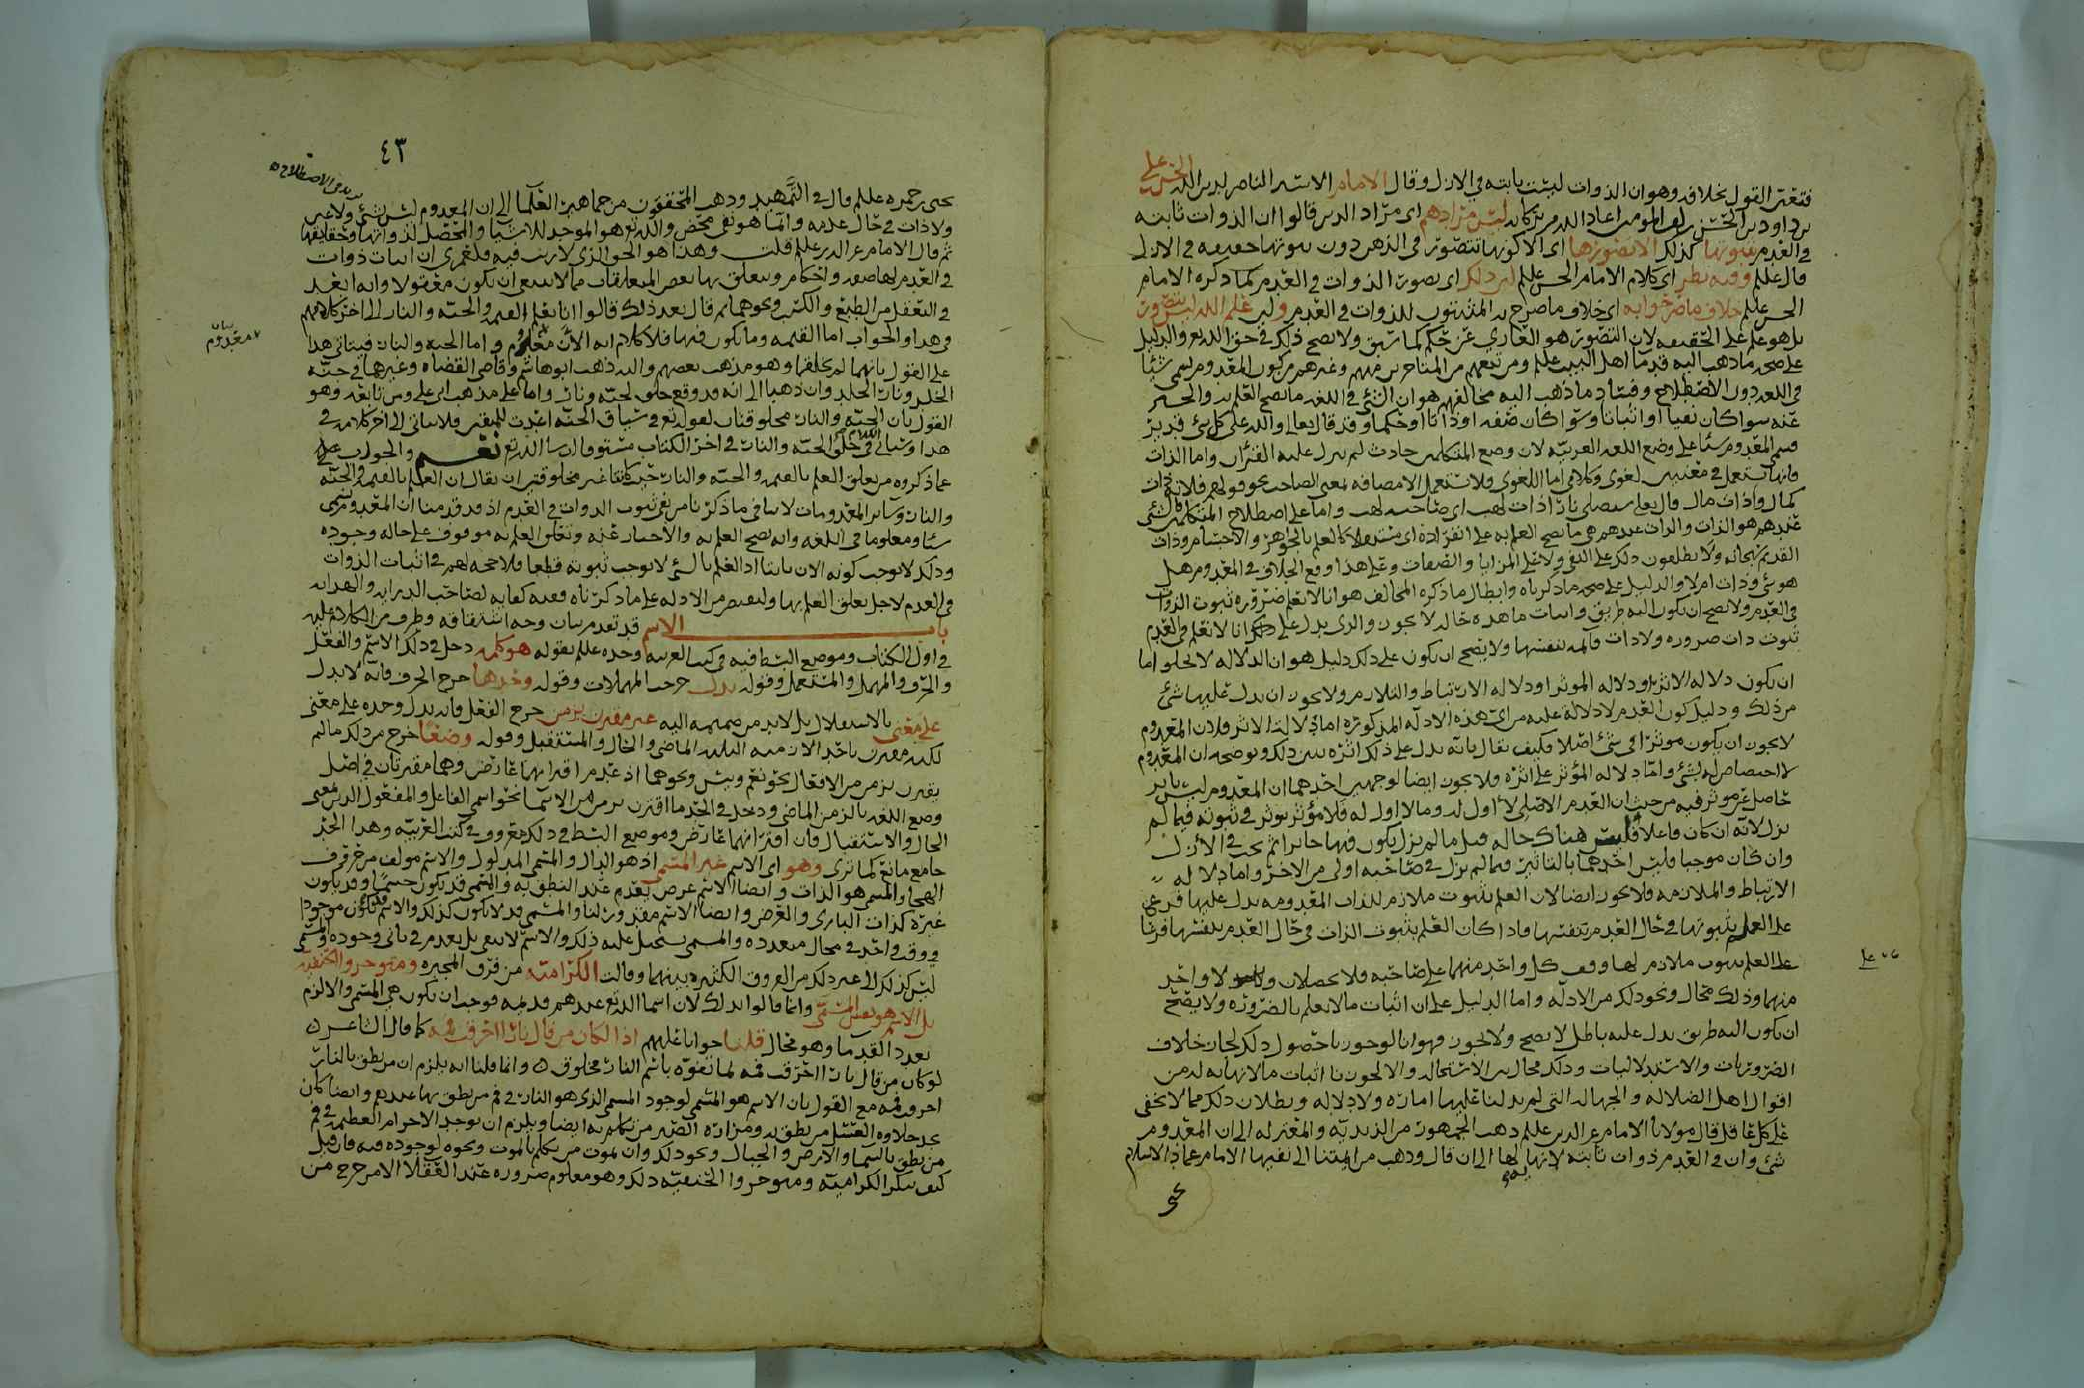 فتعين القول بخلافه وهو ان الذوات ليست ثابته في الازل وقال الامام الاسد الناصر لدين الله الحسن علي
بن داود بن الحسن لف المومن اعاد الله من بركاته ليس مرادهم اي مراد الذين قالوا ان الذوات ثابته
في العدم ثبوتها كذلك الا تصورها اي الا كونها تتصور في الذهن دون ثبوتها حقيقه في الازل
قال عليلم وفيه نظر اي كلام الامام الحسن عليلم لان ذلك اي تصور الذوات في العدم كما ذكره الامام
الحسن عليلم خلاف ما صرحوا به اي خلاف ما صرح به المثبتون للذوات في العدم ولان علم الله ليس بتصور
بل هو علم على الحقيقه لان التصور هو العاري عن حكم كما سبق ولا يصح ذلك في حق الله تع والدليل
على صحه ما ذهب اليه قدما اهل البيت عليلم ومن تبعهم من المتاخرين منهم وغيرهم من كون المعدوم يسمى شيئا
في اللغه دون الاصطلاح وفساد ما ذهب اليه مخالفهم هو ان الشي في اللغه ما يصح العلم به والخبر
عنه سوا كان نفيا او اثباتا وسوا كان صفه او ذاتا او حكما وقد قال تعالى والله على كل شي قدير
فسمى المعدوم شيئا على وضع اللغه العربيه لان وضع المتكلمين حادث لم ينزل عليه القران واما الذات
فانها تستعمل في معنيين لغوي وكلامي اما اللغوي فلا تستعمل الا مضافه بمعنى الصاحب نحو قولهم فلانه ذات
كمال وذات مال قال تعالى سيصلى نارا ذات لهب اي صاحبه لهب واما على اصطلاح المتكلمين فالشي
عندهم هو الذات والذات عندهم هي ما يصح العلم به على انفراده اي مستقلا كالعلم بالجواهر والاجسام وذات
القديم سبحانه ولا يطلقون ذلك على النفي ولا على المزايا والصفات وعلى هذا وقع الخلاف في المعدوم هل
هو شي وذات ام لا والدليل على صحه ما ذكرناه وابطال ما ذكره المخالف هو انا لا نعلم ضروره ثبوت الذوات
في العدم ولا يصح ان يكون اليه طريق واثبات ما هذه حاله لا يجوز والذي يدل على ذلك انا لا نعلم في العدم
ثبوت ذات ضروره ولا ذات قائمه بنفسها ولا يصح ان يكون على ذلك دليل هو ان الدلاله لا تخلوا اما
ان تكون دلاله الاثر او دلاله الموثر او دلاله الارتباط والتلازم ولا يجوز ان يدل عليها شي
من ذلك ودليل كون العدم لا دلالة عليه من اي هذه الادله المذكوره اما دلاله الاثر فلان المعدوم
لا يجوز ان يكون موثرا في شي اصلا فكيف يقال بانه يدل على ذلك اثره يبين ذلك ويوضحه ان المعدوم
لا اختصاص له بشي واما دلاله المؤثر على اثره فلا يجوز ايضا لوجهين احدهما ان المعدوم ليس باثر
حاصل عن موثر فيه من حيث ان العدم الاصلي لا اول له وما لا اول له فلا مؤثر يوثر في ثبوته فيما لم
يزل لانه ان كان فاعلا فليس هناك حاله قبل ما لم يزل يكون فيها حاير اثم يحدث في الازل
وان كان موجبا فليس احدهما بالتاثير فيما لم يزل في صاحبه اولى من الاخر واما دلاله
الارتباط والملازمه فلا يجوز ايضا لان العلم بثبوت ملازم للذات المعدومه يدل عليها فرع على
على العلم بثبوتها في حال العدم بنفسها فاذا كان العلم بثبوت الذات في حال العدم بنفسها فرعا
على العلم بثبوت ملازم لها وقف كل واحد منهما على صاحبه فلا يحصلان ولا واحد
منهما وذلك محال ونحو ذلك من الادله واما الدليل على ان اثبات ما لا يعلم بالضروره ولا يصح
ان يكون اليه طريق يدل عليه باطل لا يصح ولا يجوز فهو انا لو جوزنا حصول ذلك لجاز خلاف
الضروريات والاستدلاليات وذلك محال بين الاستحاله ولا لجوزنا اثبات ما لا نهايه له من
اقوال اهل الضلاله والجهاله التي لم يدلنا عليها اماره ولا دلاله وبطلان ذلك مما لا يخفى
على كل عاقل قال مولانا الامام عز الدين عليلم ذهب الجمهور من الزيديه والمعتزله الى ان المعدوم
شي وان في العدم ذوات ثابته لا نهايه لها الى ان قال وذهب من ايمتنا الى نفيها الامام عماد الاسلام
يحيى
٤٣
يحيى بن حمزه عليلم قال في التمهيد وذهب المحققون من جماهير العلما الى ان المعدوم ليس بشي ولا عين
ولا ذات في حال عدمه وانما هو نفي محض والله تع هو الموجد للاشيا والمحصل لذواتها وحقايقها
ثم قال الامام عز الدين عليلم قلت وهذا هو الحق الذي لا ريب فيه فلعمري ان اثبات ذوات
في العدم لها صفه واحكام ويتعلق بها بعض المتعلقات مما لا ينبغي ان يكون معقولا وانه ابعد
في التعقل من الطبع والكسب ونحوهما ثم قال بعد ذلك قالوا انا نعلم القيمه والجنه والنار الى اخر كلامهم
في هذا والجواب اما القيمه وما يكون فيها فلا كلام انه الان معدوم واما الجنه والنار فيتاتى هذا
على القول بانهما لم يخلقا وهو مذهب بعضهم واليه ذهب ابو هاشم وقاضي القضاه وغيرهما في جنه
الخلد ونار الخلد وان ذهبا الى انه قد وقع خلق لجنه ونار واما على مذهب ابي علي ومن تابعه وهو
القول بان الجنه والنار مخلوقتان لقوله تع في سياق الجنه اعدت للمتقين فلا يتاتى الى اخر كلامه في
هذا وسياتي الكلام في خلق الجنه والنار في اخر الكتاب مستوفا ان شا الله تع نعم والجواب عليه
عما ذكروه من تعلق العلم بالقيمه والجنه والنار حيث كانتا غير مخلوقتين ان يقال ان العلم بالقيمه والجنه
والنار وساير المعدومات لا ينافي ما ذكرنا من نفي ثبوت الذوات في العدم اذ قد قدمنا ان المعدوم يسمى
شيئا ومعلوما في اللغه وانه يصح العلم به والاخبار عنه وتعلق العلم به موقوف على حاله وجوده
وذلك لا يوجب كونه الان ثابتا اذ العلم بالشي لا يوجب ثبوته قطعا فلا حجه لهم في اثبات الذوات
في العدم لاجل تعلق العلم بها ولنقتصر من الادله على ما ذكرناه ففيه كفايه لصاحب الدرايه والهدايه
باب الاسم قد تقدم بيان وجه اشتقاقه وطرف من الكلام عليه
في اول الكتاب وموضع البسط فيه في كتب العربيه وحده عليلم بقوله هو كلمه دخل في ذلك الاسم والفعل
والحرف والمهمل والمستعمل وقوله تدل خرجت المهملات وقوله وحدها خرج الحرف فانه لا يدل
على معنى بالاستقلال بل لا بد من ضميمه اليه غير مقترن بزمن خرج الفعل فانه يدل وحده على معنى
لكنه مقترن باحد الازمنه الثلاثه الماضي والحال والمستقبل وقوله وضعا خرج من ذلك ما لم
يقترن بزمن من الافعال نحو نعم وبيس ونحوهما اذ عدم اقترانهما عارض وهما مقترنان في اصل
وضع اللغه بالزمن الماضي ودخل في الحد ما اقترن بزمن من الاسما نحو اسمي الفاعل والمفعول الذي بمعنى
الحال والاستقبال فان اقترانهما عارض وموضع البسط في ذلك معروف في كتب العربيه وهذا الحد
جامع مانع كما ترى وهو اي الاسم غير المسمى اذ هو الدال والمسمى المدلول والاسم مولف من حروف
الهجا والمسمى هو الذات وايضا الاسم عرض يعدم عند النطق به والمسمى قد يكون جسما وقد يكون
غيره كذات الباري والعرض وايضا الاسم مقدور لنا والمسمى قد لا يكون كذلك والاسم قد يكون موجودا
في وقت واحد في محال متعدده والمسمى يستحيل عليه ذلك والاسم لا يبقى بل يعدم في ثاني وجوده والمسمى
ليس كذلك الى غير ذلك من الفروق الكثيره بينهما وقالت الكراميه من فرق المجبره ومتاخروا الحنفيه
بل الاسم هو نفس المسمى وانما قالوا بذلك لان اسما الله تع عندهم قديمه فوجب ان تكون هي المسمى والا لزم
تعدد القدما وهو محال قلنا جوابا عليهم اذا لكان من قال نارا احترق فيه كما قال الشاعر
لو كان من قال نارا احترقت فمه لما تفوه باسم النار مخلوق وانما قلنا انه يلزم ان من نطق بالنار
احرقت فمه مع القول بان الاسم هو المسمى لوجود المسمى الذي هو النار في فم من نطق بها عندهم وايضا كان
يجد حلاوه العسل من نطق به ومراره الصبر من تكلم به ايضا ويلزم ان توجد الاجرام العظيمه في فم
من نطق بالسما والارض والجبال ونحو ذلك وان يموت من تكلم بالموت ونحوه لوجوده فيه فان قيل
كيف تنكر الكراميه ومتاخروا الحنفيه ذلك وهو معلوم ضروره عند العقلا الا من خرج من